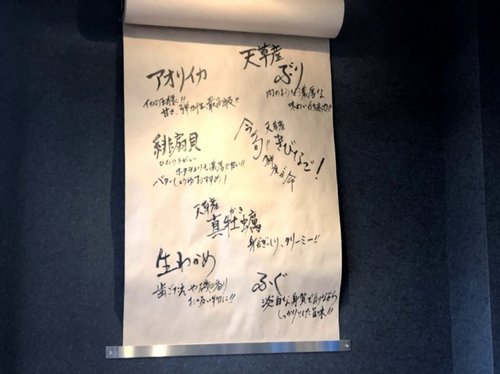 天草産
ぶり
肉のような濃厚な
味わい
アオリイカ
イカの王様!!
甘さ、
天草産
きびなご!
今が旬!
鮮度が命
緋扇貝
ひおうぎがい
ホタテよりも濃厚で甘い!!
バターしょうゆおすすめ!
天草産
かき
真牡蠣
身はぎっしり、クリーミー!!
生わかめ
歯ごたえや磯の香り
ふぐ
淡白な身質でありながら
しっかりとした旨味!!